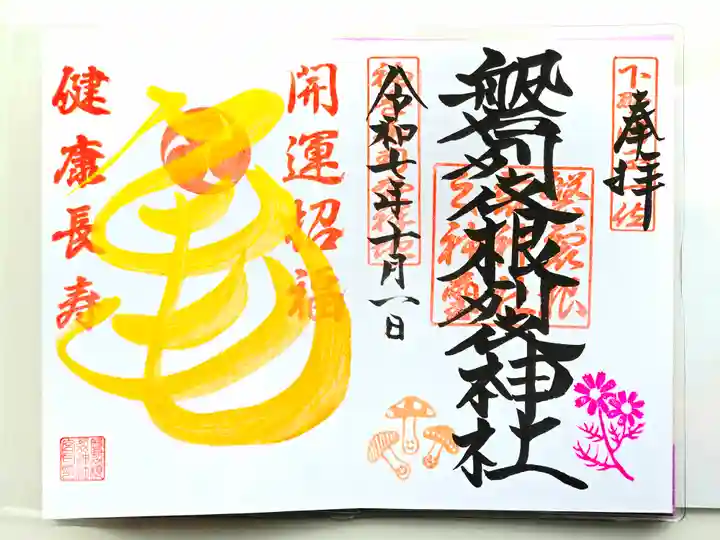 奉拝
磐裂根裂神社
令和七年十月一日
開運招福
健康長寿